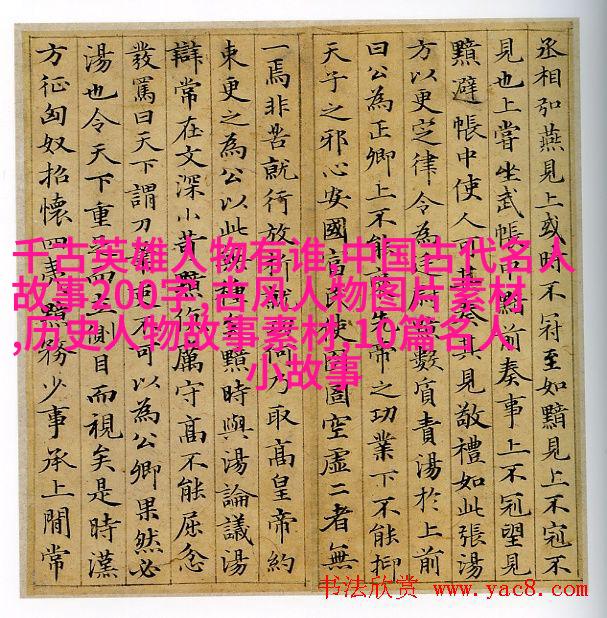 丞相弘燕見上或時不冠至如黯見上不冠不
見也上嘗坐武帳中黯前奏事上不冠望見
黯避帳中使人可其奏其見敬禮如此張湯
方以更定律令為廷尉黯數質責湯於上前
曰公為正卿上不能褒先帝之功業下不能抑
天子之邪心安國富民使囹圄空虛二者無
一焉非苦就行放析就功何乃取高皇帝約
束更之為公以此無種矣黯時與湯論議湯
辯常在文深小苛黯伉厲守高不能屈忿
發罵曰天下謂刀筆吏不可以為公卿果然必
湯也令天下重足而立側目而視矣是時漢
方征匈奴招懷四夷黯務少事承上間常
千古英雄人物有谁,中国古代名人
故事200字,古风人物图片素材
,历史人物故事素材,10篇名人
小故事
书法欣赏 www.yac8.com